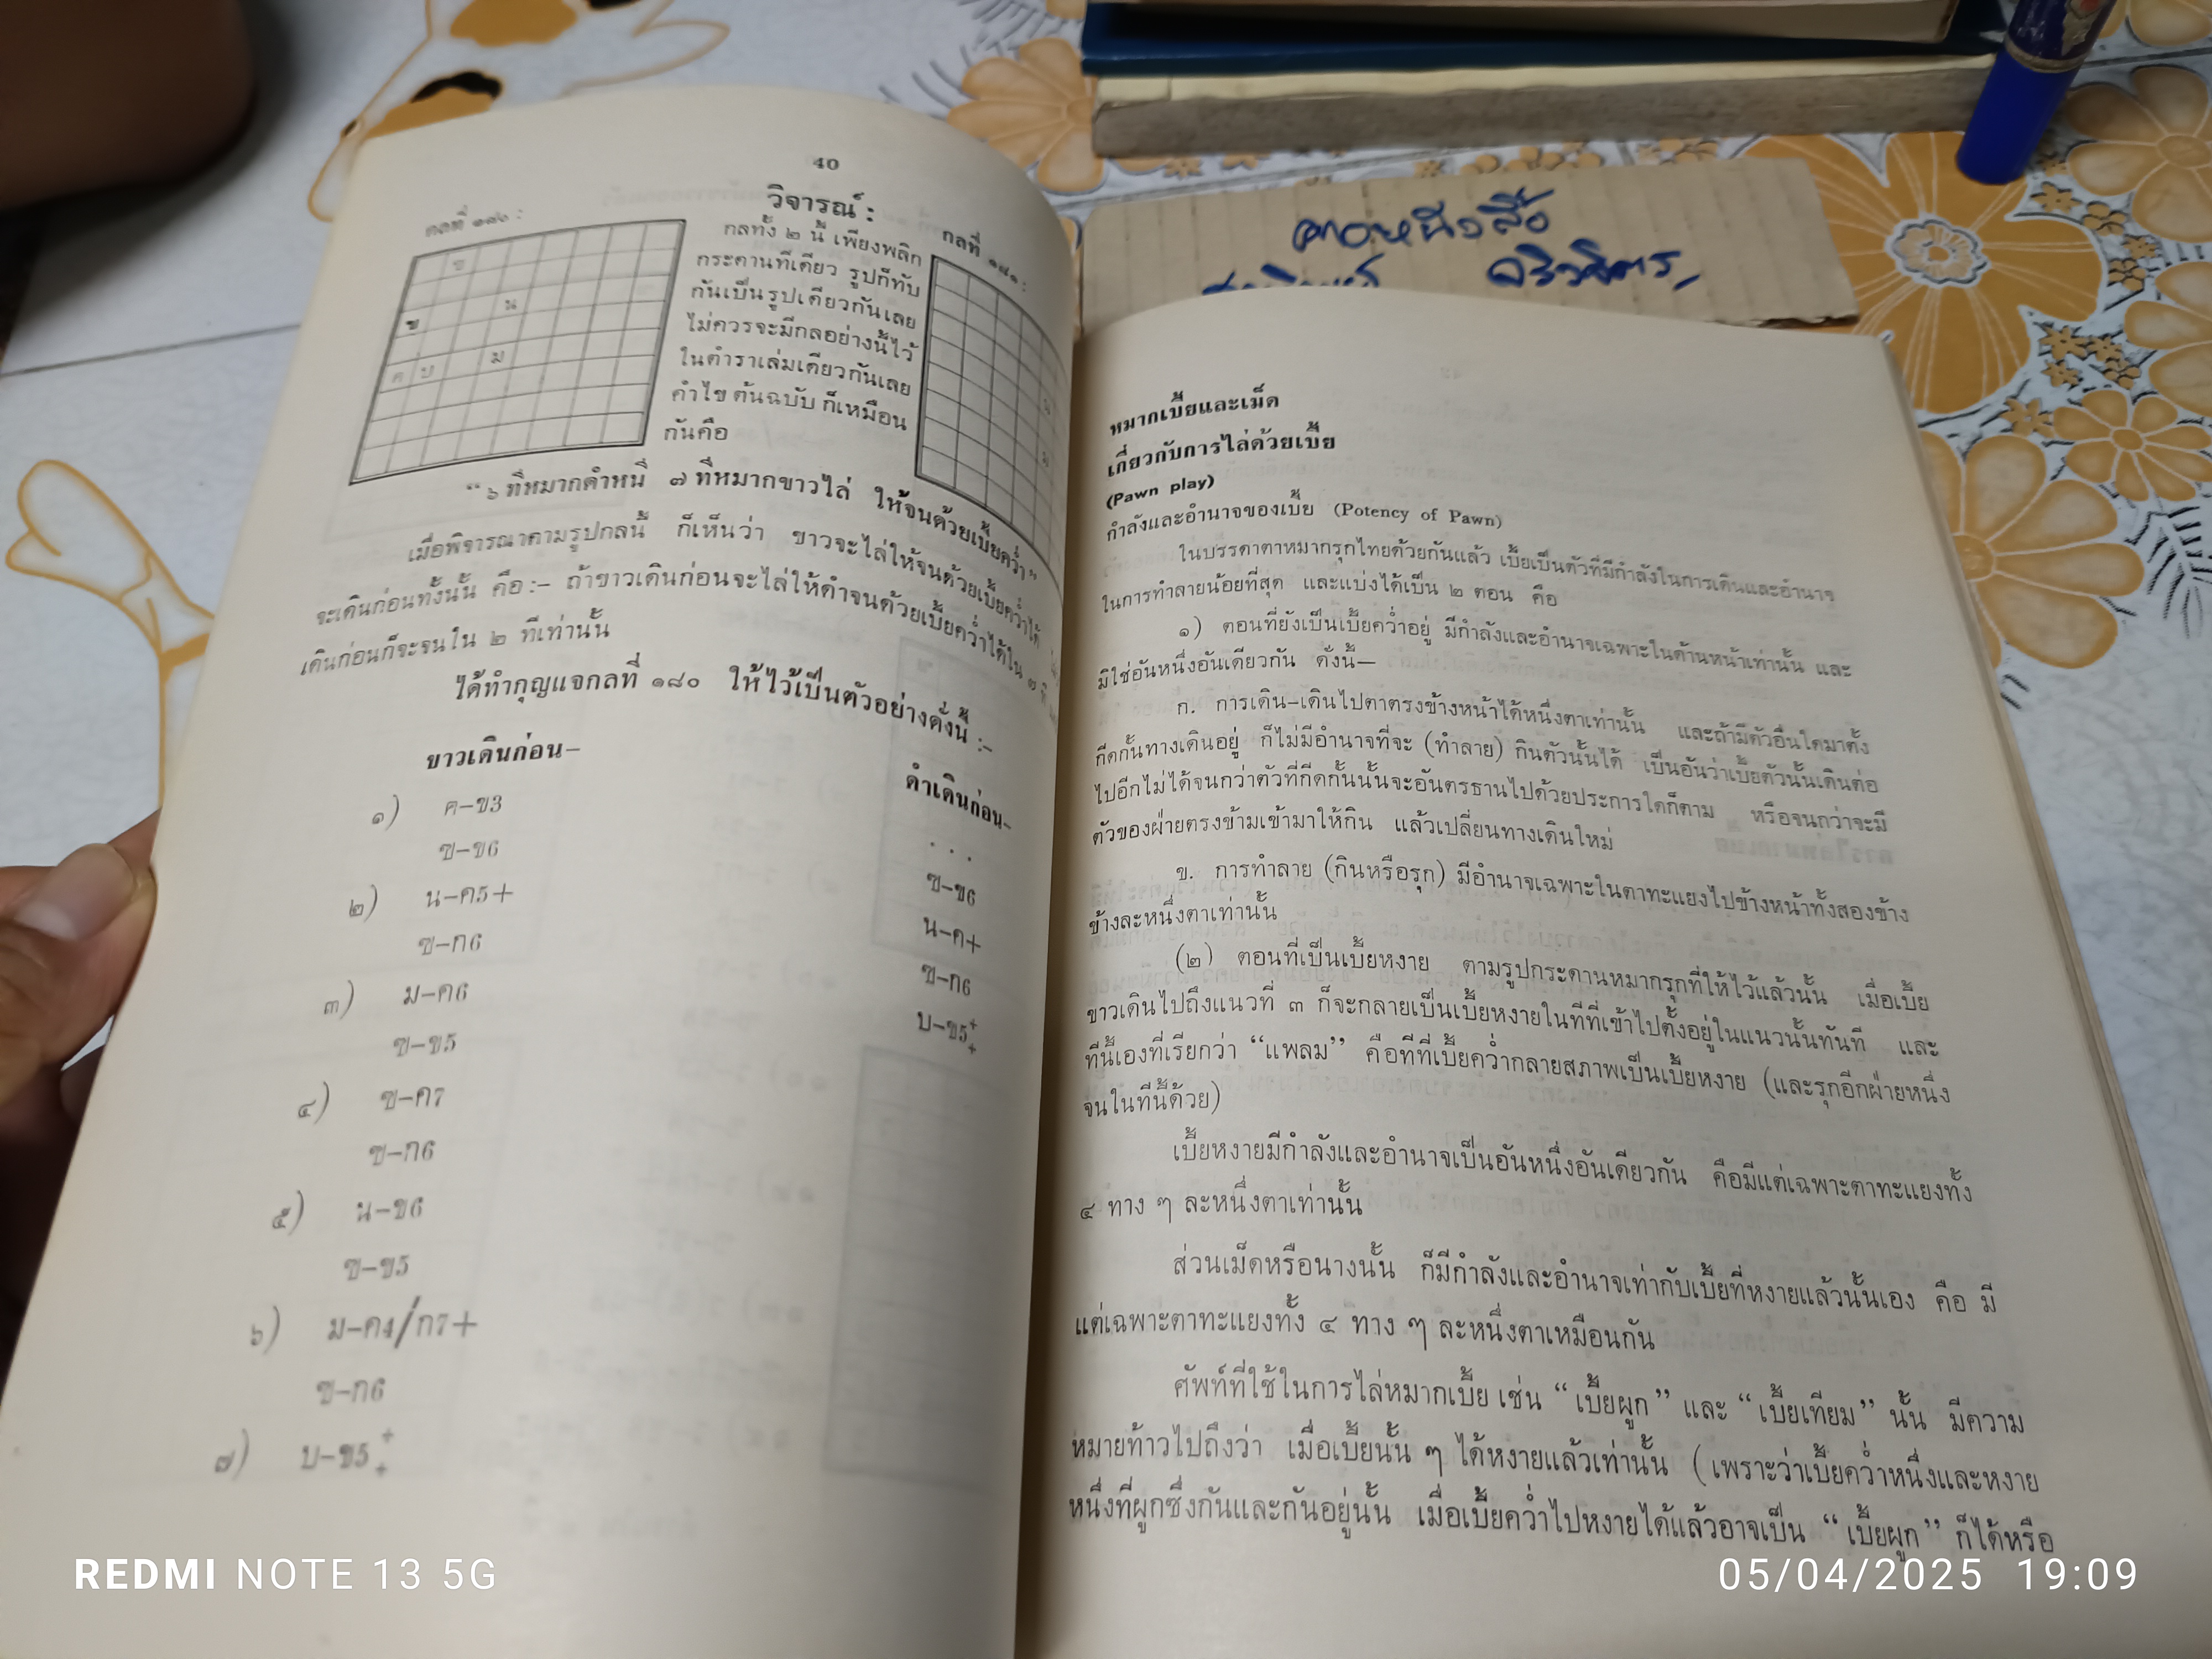 40
วิจารณ์ :
กลที่ ๑๘๐ :
ข
น
ข
ม
ค บ
กลทั้ง ๒ นี้ เพียงพลิก
กระดานทีเดียว รูปก็ทับ
กันเป็นรูปเดียวกันเลย
ไม่ควรจะมีกลอย่างนี้ไว้
ในตำราเล่มเดียวกันเลย
คำไข ต้นฉบับ ก็เหมือน
กันคือ
กลที่ ๑๘๑ :
“๖ ทีหมากดำหนี ๗ ทีหมากขาวไล่ ให้จนด้วยเบี้ยคว่ำ”
เมื่อพิจารณาตามรูปกลนี้ ก็เห็นว่า ขาวจะไล่ให้จนด้วยเบี้ยคว่ำได้
จะเดินก่อนทั้งนั้น คือ :– ถ้าขาวเดินก่อนจะไล่ให้ดำจนด้วยเบี้ยคว่ำได้ใน ๗ ที
เดินก่อนก็จะจนใน ๒ ทีเท่านั้น
ได้ทำกุญแจกลที่ ๑๘๐ ให้ไว้เป็นตัวอย่างดั่งนี้ :–
ขาวเดินก่อน–
๑) ค–ข3
ฃ–ข6
๒) น–ค5+
ฃ–ก6
๓) ม–ค6
ฃ–ข5
๔) ฃ–ค7
ฃ–ก6
๕) น–ข6
ฃ–ข5
๖) ม–ค4/ก7+
ฃ–ก6
๗) บ–ข5++
ดำเดินก่อน–
. . .
ฃ–ข6
น–ค+
ฃ–ก6
บ–ข5++
หมากเบี้ยและเม็ด
เกี่ยวกับการไล่ด้วยเบี้ย
(Pawn play)
กำลังและอำนาจของเบี้ย (Potency of Pawn)
ในบรรดาตาหมากรุกไทยด้วยกันแล้ว เบี้ยเป็นตัวที่มีกำลังในการเดินและอำนาจ
ในการทำลายน้อยที่สุด และแบ่งได้เป็น ๒ ตอน คือ
๑) ตอนที่ยังเป็นเบี้ยคว่ำอยู่ มีกำลังและอำนาจเฉพาะในด้านหน้าเท่านั้น และ
มิใช่อันหนึ่งอันเดียวกัน ดั่งนี้—
ก. การเดิน–เดินไปตาตรงข้างหน้าได้หนึ่งตาเท่านั้น และถ้ามีตัวอื่นใดมาตั้ง
กีดกั้นทางเดินอยู่ ก็ไม่มีอำนาจที่จะ (ทำลาย) กินตัวนั้นได้ เป็นอันว่าเบี้ยตัวนั้นเดินต่อ
ไปอีกไม่ได้จนกว่าตัวที่กีดกั้นนั้นจะอันตรธานไปด้วยประการใดก็ตาม หรือจนกว่าจะมี
ตัวของฝ่ายตรงข้ามเข้ามาให้กิน แล้วเปลี่ยนทางเดินใหม่
ข. การทำลาย (กินหรือรุก) มีอำนาจเฉพาะในตาทะแยงไปข้างหน้าทั้งสองข้าง
ข้างละหนึ่งตาเท่านั้น
(๒) ตอนที่เป็นเบี้ยหงาย ตามรูปกระดานหมากรุกที่ให้ไว้แล้วนั้น เมื่อเบี้ย
ขาวเดินไปถึงแนวที่ ๓ ก็จะกลายเป็นเบี้ยหงายในทีที่เข้าไปตั้งอยู่ในแนวนั้นทันที และ
ทีนี้เองที่เรียกว่า “แพลม” คือทีที่เบี้ยคว่ำกลายสภาพเป็นเบี้ยหงาย (และรุกอีกฝ่ายหนึ่ง
จนในทีนี้ด้วย)
เบี้ยหงายมีกำลังและอำนาจเป็นอันหนึ่งอันเดียวกัน คือมีแต่เฉพาะตาทะแยงทั้ง
๔ ทาง ๆ ละหนึ่งตาเท่านั้น
ส่วนเม็ดหรือนางนั้น ก็มีกำลังและอำนาจเท่ากับเบี้ยที่หงายแล้วนั้นเอง คือ มี
แต่เฉพาะตาทะแยงทั้ง ๔ ทาง ๆ ละหนึ่งตาเหมือนกัน
ศัพท์ที่ใช้ในการไล่หมากเบี้ย เช่น “เบี้ยผูก” และ “เบี้ยเทียม” นั้น มีความ
หมายท้าวไปถึงว่า เมื่อเบี้ยนั้น ๆ ได้หงายแล้วเท่านั้น (เพราะว่าเบี้ยคว่ำหนึ่งและหงาย
หนึ่งที่ผูกซึ่งกันและกันอยู่นั้น เมื่อเบี้ยคว่ำไปหงายได้แล้วอาจเป็น “เบี้ยผูก” ก็ได้หรือ
REDMI NOTE 13 5G
05/04/2025 19:09